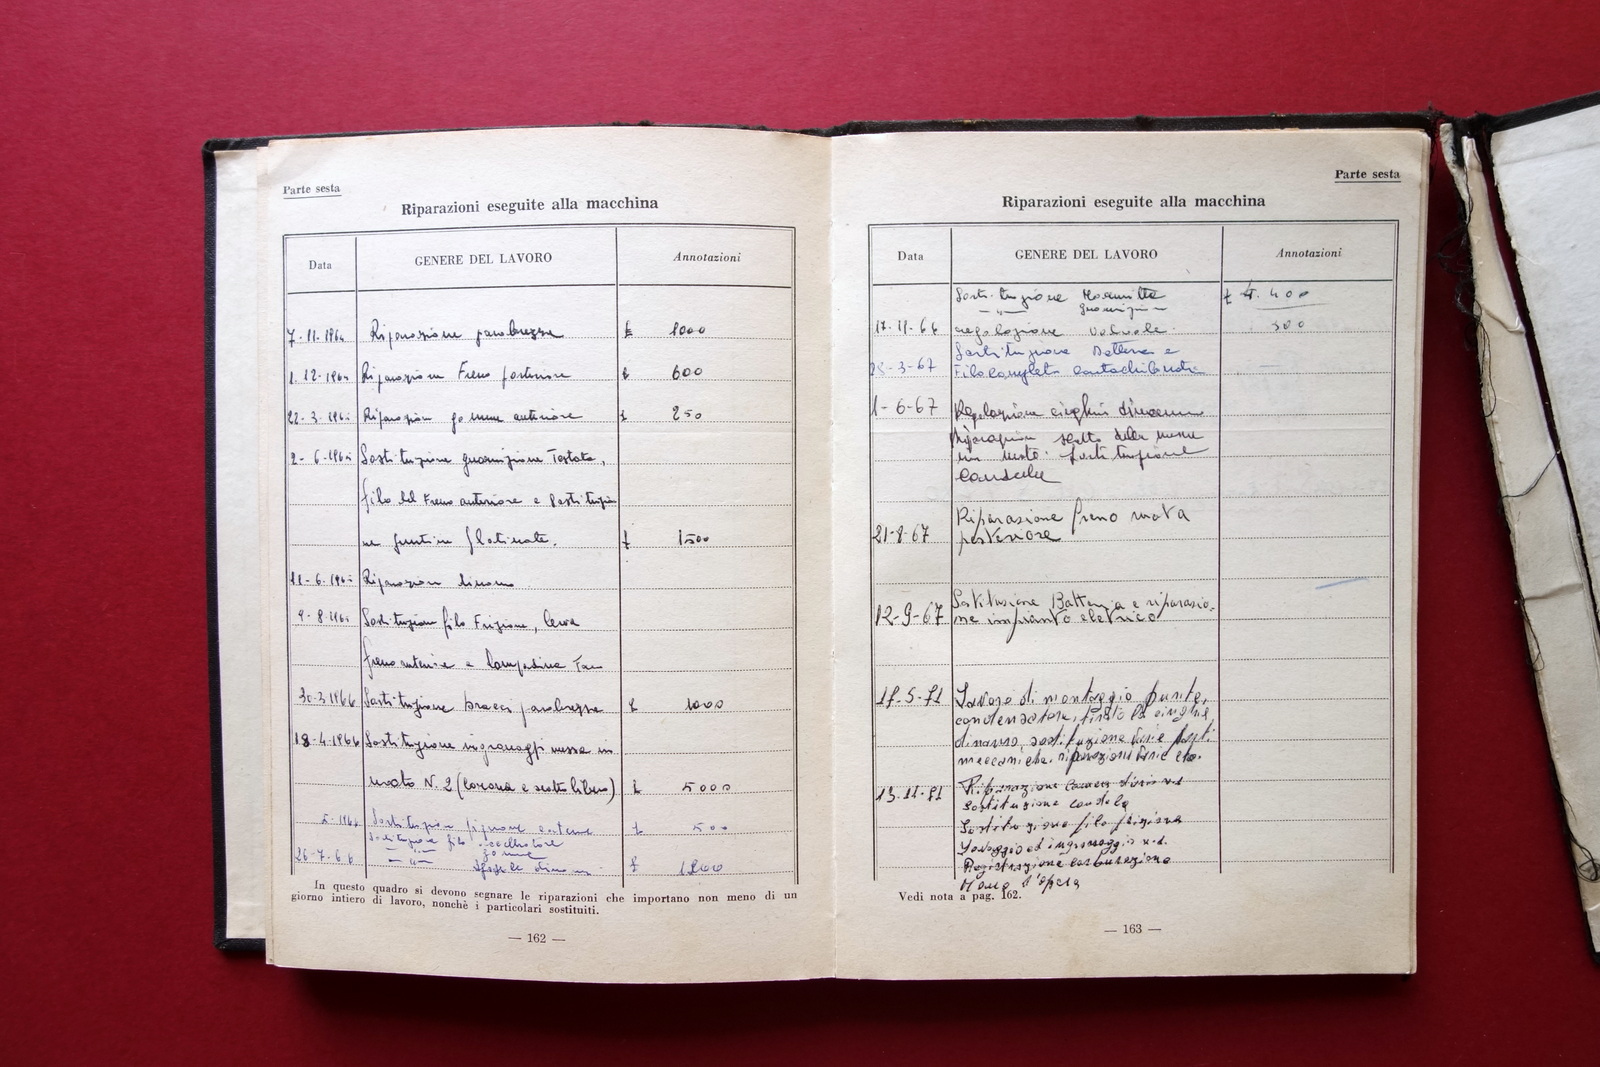 Parte sesta
Riparazioni eseguite alla macchina
Data
GENERE DEL LAVORO
Annotazioni
7-11-1964 Riparazione parabrezza £ 1000
1-12-1964 Riparazione Freno posteriore £ 600
22-3-1965 Riparazion gomme anteriore £ 250
2-6-1965 Sostituzione guarnizione Testata,
filo del Freno anteriore e Sostituzio
ne puntine platinate. £ 1500
11-6-1965 Riparazion dinamo
9-8-1965 Sostituzion filo Frizione, leva
freno anteriore e lampadina
30-3-1966 Sostituzione bracci parabrezza £ 1000
18-4-1966 Sostituzione ingranaggi messa in
moto N. 2 (corona e scatto libero) £ 5000
Sostituzion pignone £ 500
Sostituzione filo
26-7-66 — " — £
In questo quadro si devono segnare le riparazioni che importano non meno di un
giorno intiero di lavoro, nonchè i particolari sostituiti.
— 162 —
Parte sesta
Riparazioni eseguite alla macchina
Data
GENERE DEL LAVORO
Annotazioni
Sostituzione Marmitta
— " — Guarnizion
17-11-66 regolazione Valvole 300
Sostituzione Batteria e
28-3-67 Filo completo contachilometri
1-6-67 Regolazione cinghia dinamo
Riparazion scatto della messa
in moto. Sostituzione
Candela
Riparasione freno ruota
21-8-67 posteriore
Sostitusione Batteria e riparasio-
12-9-67 ne impianto eletrico
17-5-71 Lavoro di montaggio punte,
condensatore, cinghia
dinamo, sostituzione varie parti
meccaniche, riparazioni varie ecc.
13-11-71
Sostituzione candela
Sostituzione filo frizione
Lavaggio ed ingrassaggio
Registrazione carburazione
Mano d'opera
Vedi nota a pag. 162.
— 163 —